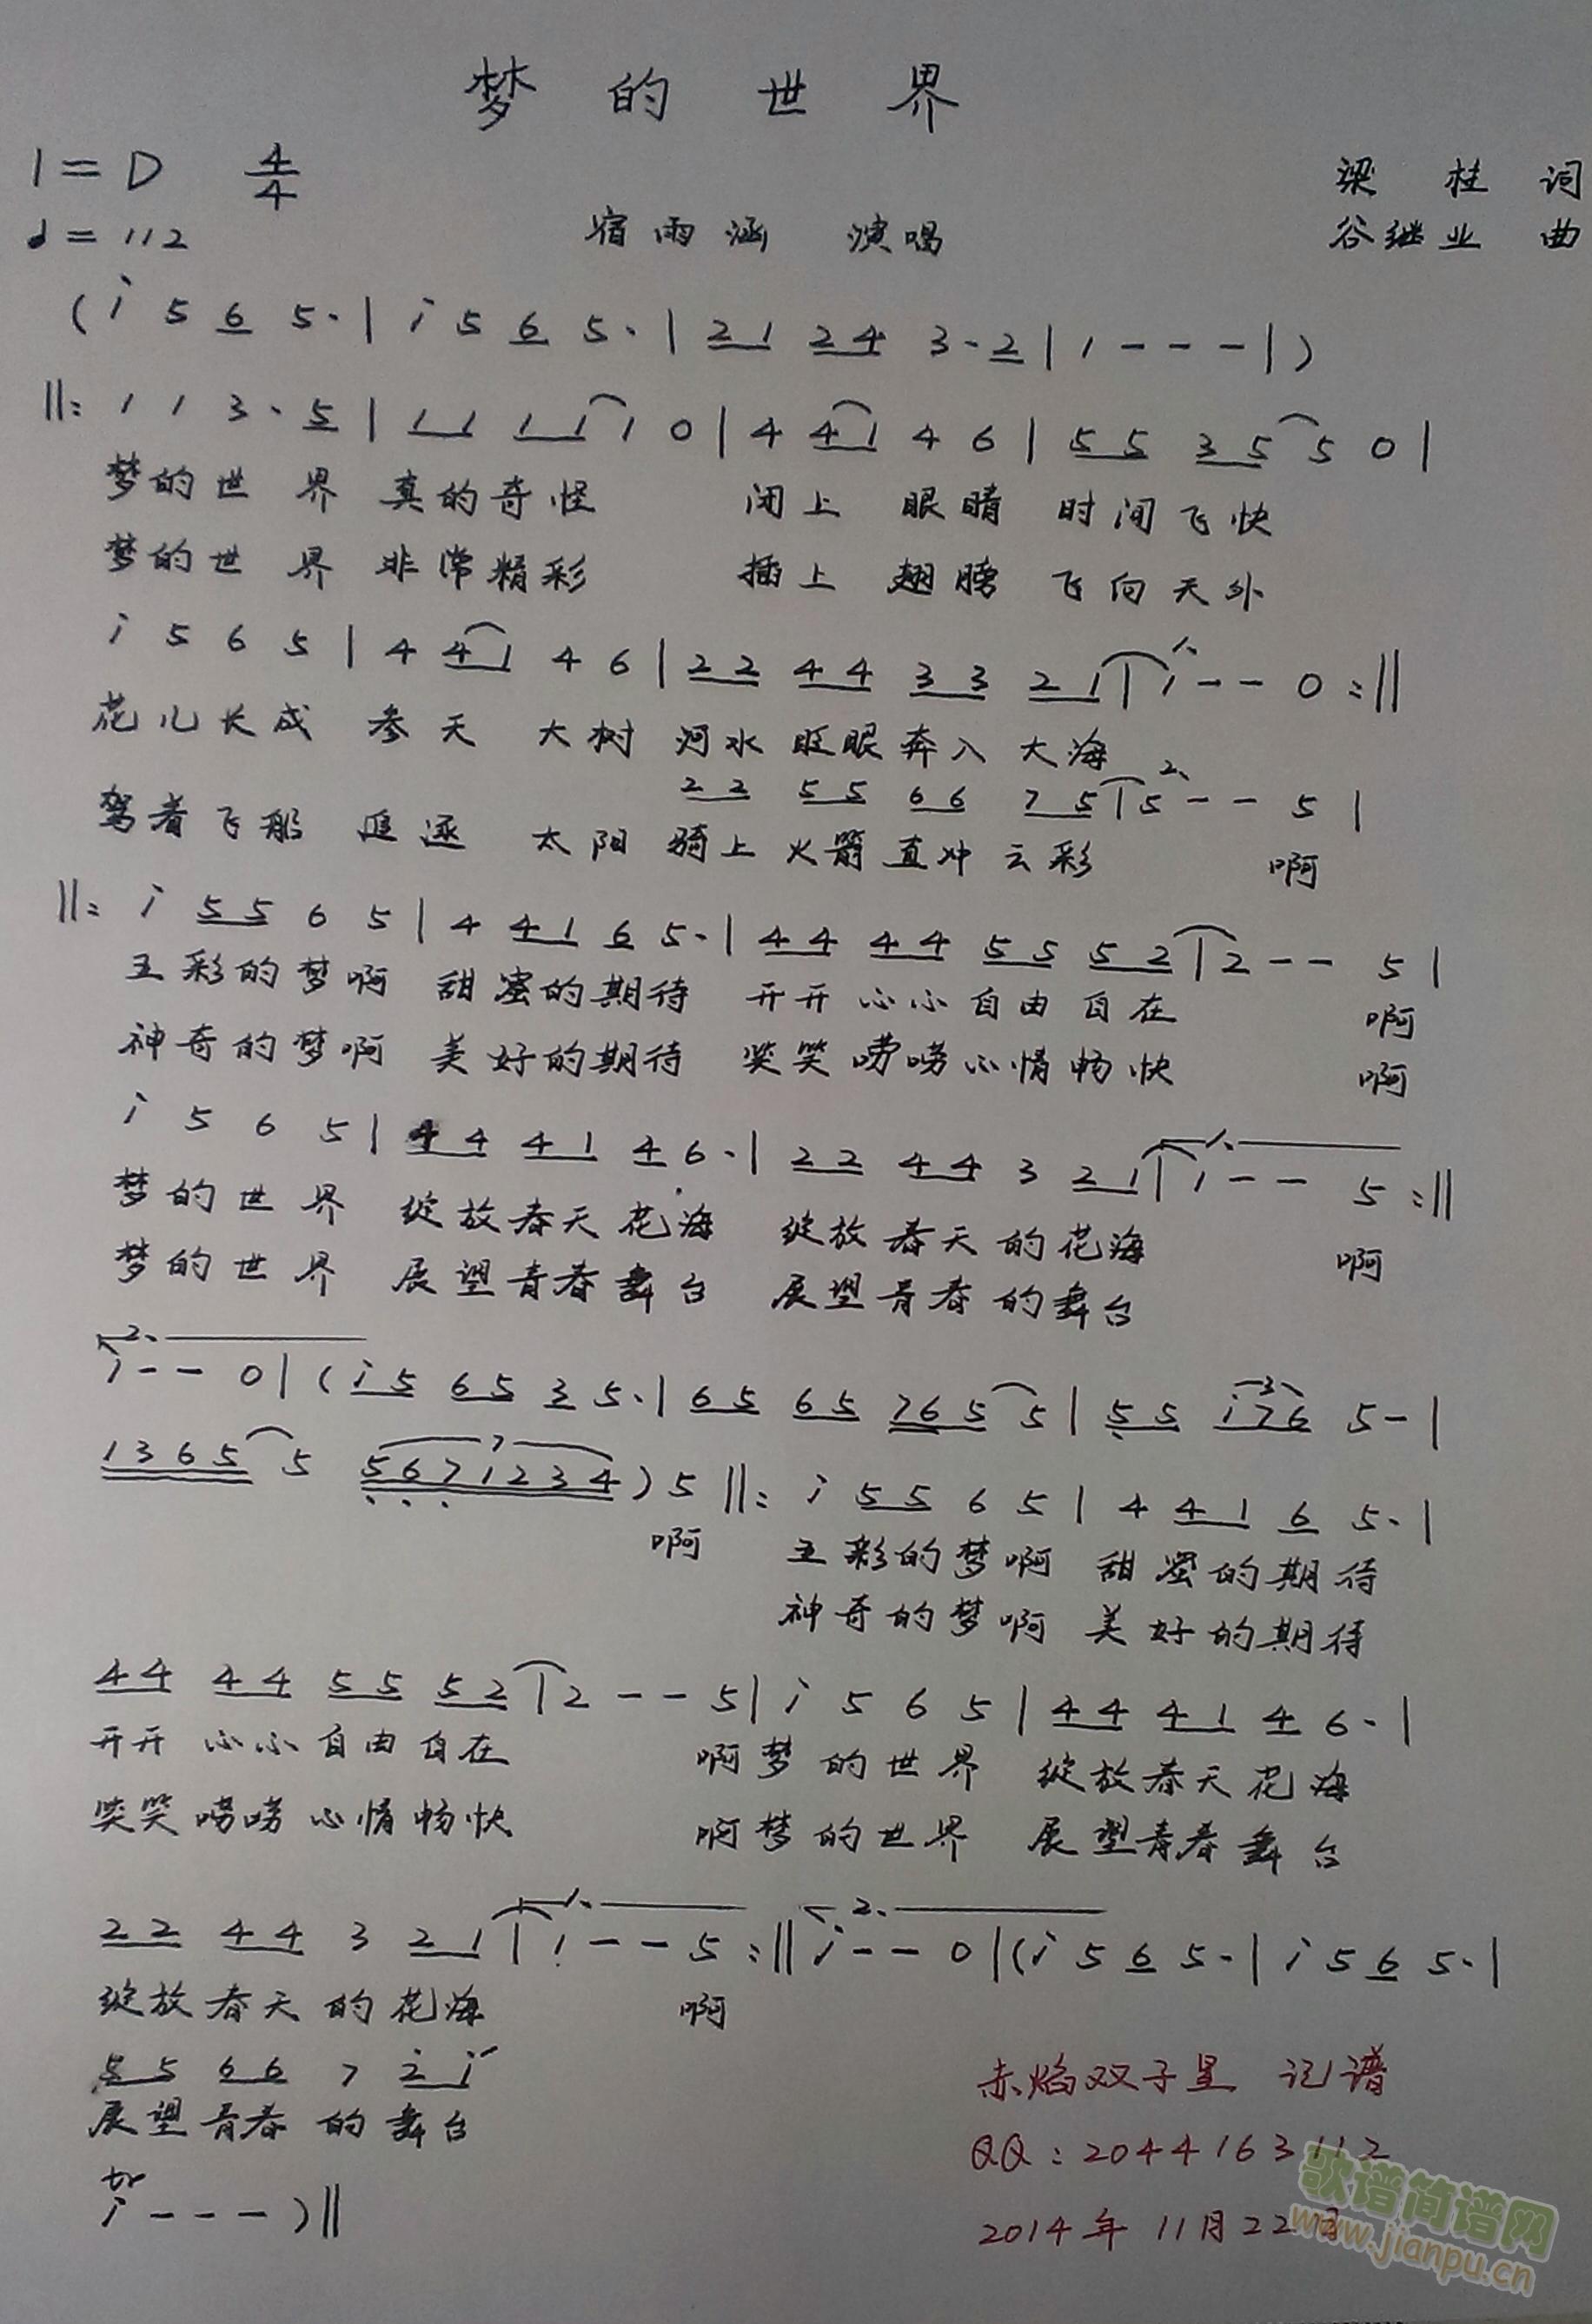 梦的世界
1=D 4/4
梁桂 词
♩=112
宿雨涵 演唱
谷继业 曲
(i 5 6 5·|i 5 6 5·|2 1 2 4 3·2|1---|)
||:1 1 3·5|1 1 1 1 1 0|4 4 1 4 6|5 5 3 5 5 0|
梦的世界 真的奇怪 闭上 眼睛 时间飞快
梦的世界 非常精彩 插上 翅膀 飞向天外
i 5 6 5|4 4 1 4 6|2 2 4 4 3 3 2 1|1.1--0:||
花儿长成 参天 大树 河水眨眼奔入大海
2 2 5 5 6 6 7 5|2.5--5|
驾着飞船 追逐 太阳 骑上火箭直冲云彩 啊
||:i 5 5 6 5|4 4 1 6 5·|4 4 4 4 5 5 5 2|2--5|
五彩的梦啊 甜蜜的期待 开开心心自由自在 啊
神奇的梦啊 美好的期待 笑笑唠唠心情畅快 啊
i 5 6 5|4 4 4 1 4 6·|2 2 4 4 3 2 1|1.1--5:||
梦的世界 绽放春天花海 绽放春天的花海 啊
梦的世界 展望青春舞台 展望青春的舞台
2.
i--0|(i 5 6 5 3 5·|6 5 6 5 7 6 5 5|5 5 i 7 6 5-|
3
1 3 6 5 5 5 6 7 1 2 3 4)5||:i 5 5 6 5|4 4 1 6 5·|
7
啊 五彩的梦啊 甜蜜的期待
神奇的梦啊 美好的期待
4 4 4 4 5 5 5 2|2--5|i 5 6 5|4 4 4 1 4 6·|
开开心心自由自在 啊梦的世界 绽放春天花海
笑笑唠唠心情畅快 啊梦的世界 展望青春舞台
2 2 4 4 3 2 1|1.1--5:||2.i--0|(i 5 6 5·|i 5 6 5·|
绽放春天的花海 啊
5 5 6 6 7 2 i
展望青春的舞台
tr
i---)||
赤焰双子星 记谱
QQ:2044163112
2014年11月22日
歌谱简谱网
www.jianpu.cn